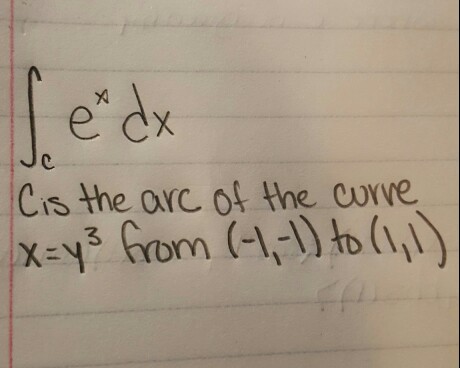 ∫_C e^x dx
C is the arc of the curve
x=y³ from (-1,-1) to (1,1)